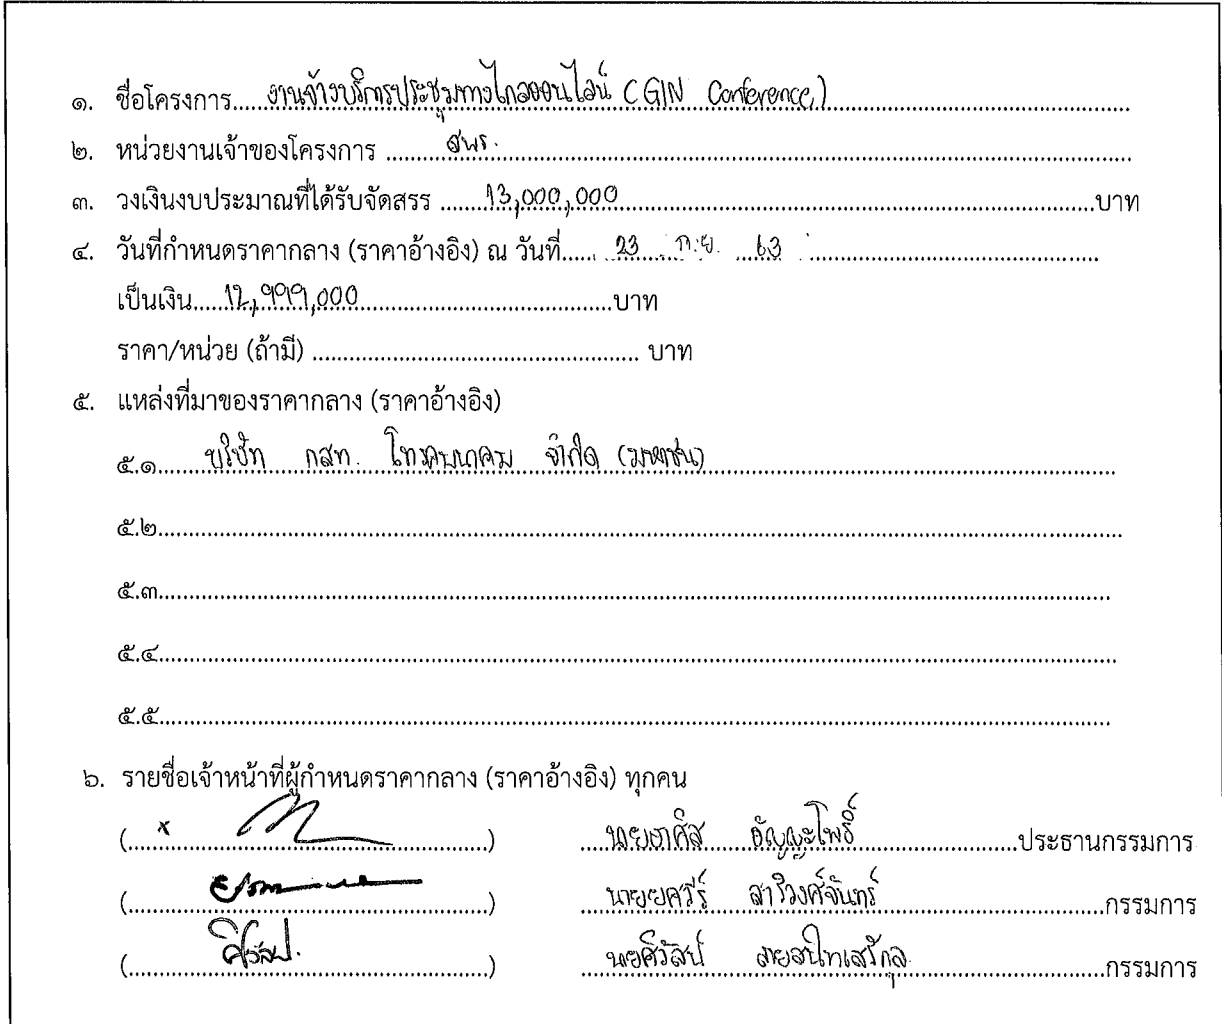 ๑. ชื่อโครงการ.....งานจ้างบริการประชุมทางไกลออนไลน์ (GIN Conference)
๒. หน่วยงานเจ้าของโครงการ .....สพร.
๓. วงเงินงบประมาณที่ได้รับจัดสรร .....13,000,000.....บาท
๔. วันที่กำหนดราคากลาง (ราคาอ้างอิง) ณ วันที่.....23 ก.ย. 63.....
เป็นเงิน.....12,999,000.....บาท
ราคา/หน่วย (ถ้ามี) ..... บาท
๕. แหล่งที่มาของราคากลาง (ราคาอ้างอิง)
๕.๑.....บริษัท กสท. โทรคมนาคม จำกัด (มหาชน)
๕.๒.....
๕.๓.....
๕.๔.....
๕.๕.....
๖. รายชื่อเจ้าหน้าที่ผู้กำหนดราคากลาง (ราคาอ้างอิง) ทุกคน
(.....) .....นายอาศิส อัญญะโพธิ์.....ประธานกรรมการ
(.....) .....นาย สาริวงศ์จันทร์.....กรรมการ
(.....ศิวัสป์.....) .....นายศิวัสป์.....กรรมการ